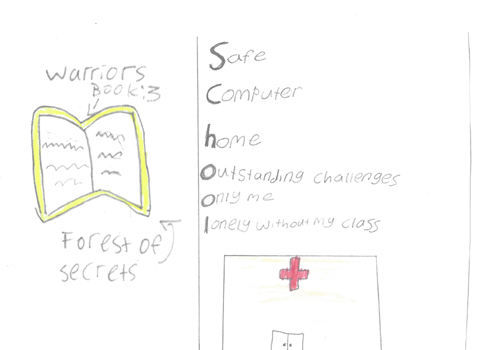 warriors
BOOK:3
Forest of
secrets
Safe
Computer
home
Outstanding challenges
Only me
lonely without my class